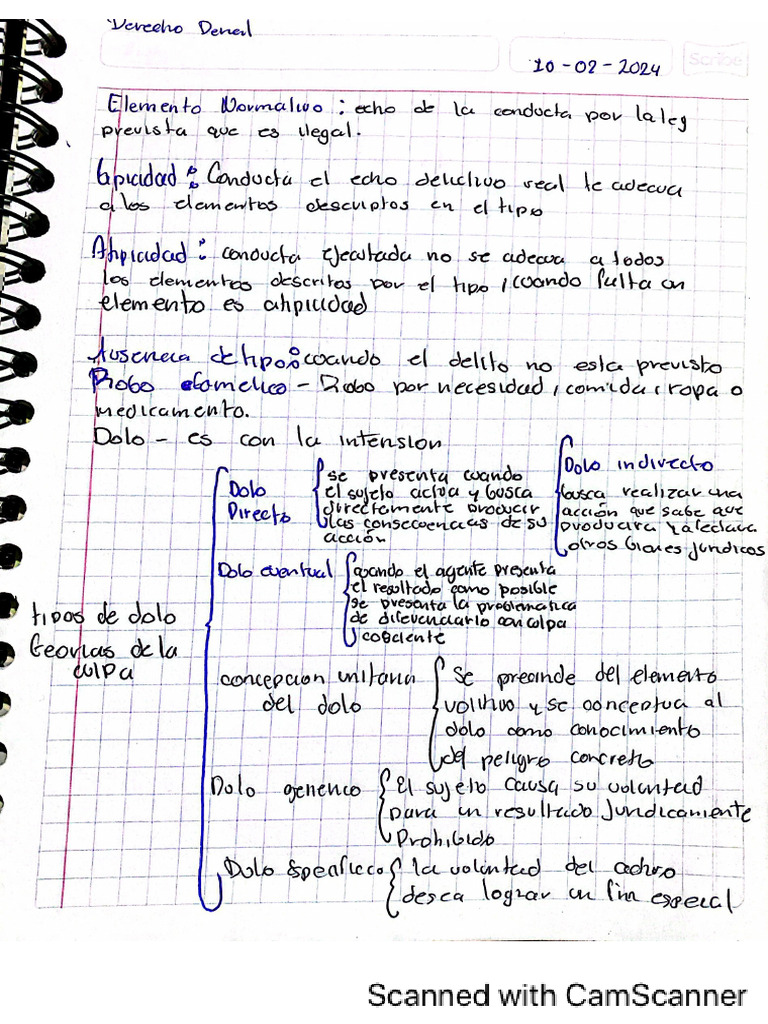 Derecho Penal
Scribe
10-02-2024
Elemento Normativo : echo de la conducta por la ley
prevista que es ilegal.
tipicidad : Conducta el echo delictivo real te adecua
a los elementos descriptos en el tipo
Atipicidad : conducta ejecutada no se adecua a todos
los elementos descritos por el tipo, cuando falta un
elemento es atipicidad
Ausencia de tipo : cuando el delito no esta previsto
Robo famelico - Robo por necesidad, comida, ropa o
medicamento.
Dolo - es con la intension
tipos de dolo
teorias de la
culpa
Dolo
Directo
se presenta cuando
el sujeto activa y busca
directamente producir
las consecuencias de su
acción
Dolo indirecto
busca realizar una
acción que sabe que
producira y afectara
otros bienes juridicos
Dolo eventual
cuando el agente presenta
el resultado como posible
se presenta la problematica
de diferenciarlo con culpa
cosciente
concepcion unitaria
del dolo
Se precinde del elemento
volitivo y se conceptua al
dolo como conocimiento
del peligro concreto
Dolo generico
El sujeto causa su voluntad
para un resultado Juridicamente
Prohibido
Dolo Especifico
la voluntad del activo
desea lograr un fin especial
Scanned with CamScanner